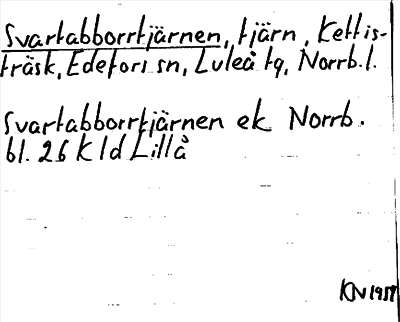 Svartabborrtjärnen, tjärn, Kettis-
träsk, Edefors sn, Luleå tg, Norrb. l.
Svartabborrtjärnen ek Norrb.
bl. 26 K ld Lillå
KN